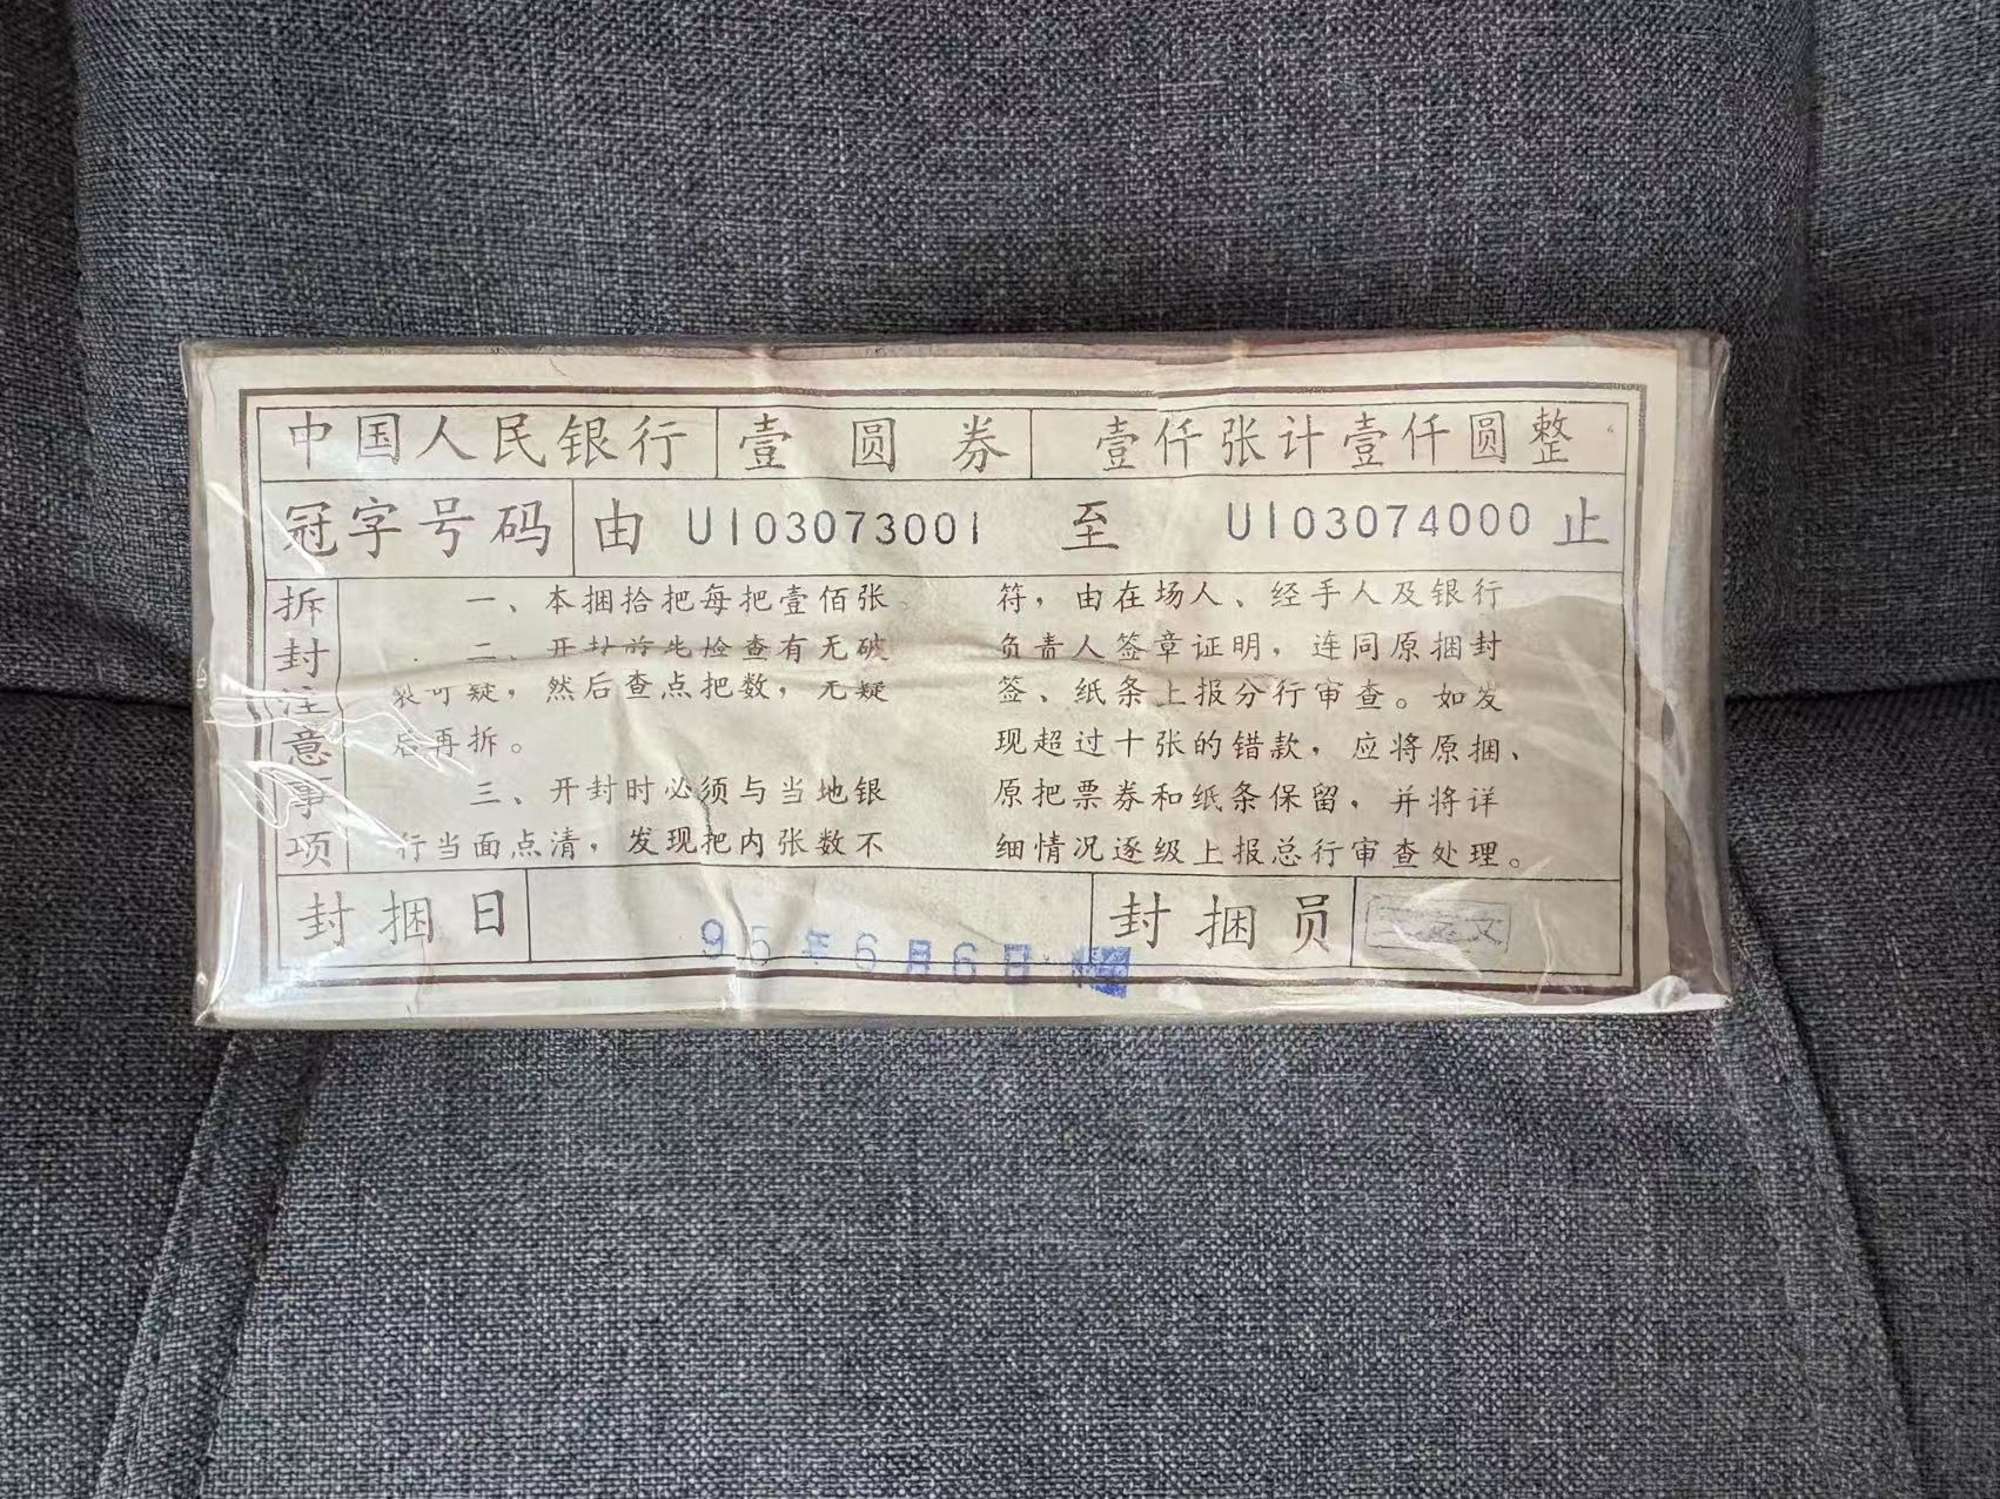 中国人民银行 壹圆券 壹仟张计壹仟圆整
冠字号码 由 UI03073001 至 UI03074000 止
拆封注意事项
一、本捆拾把每把壹佰张
二、开封前先检查有无破
裂可疑，然后查点把数，无疑
后再拆。
三、开封时必须与当地银
行当面点清，发现把内张数不
符，由在场人、经手人及银行
负责人签章证明，连同原捆封
签、纸条上报分行审查。如发
现超过十张的错款，应将原捆、
原把票券和纸条保留，并将详
细情况逐级上报总行审查处理。
封捆日 95年6月6日 封捆员